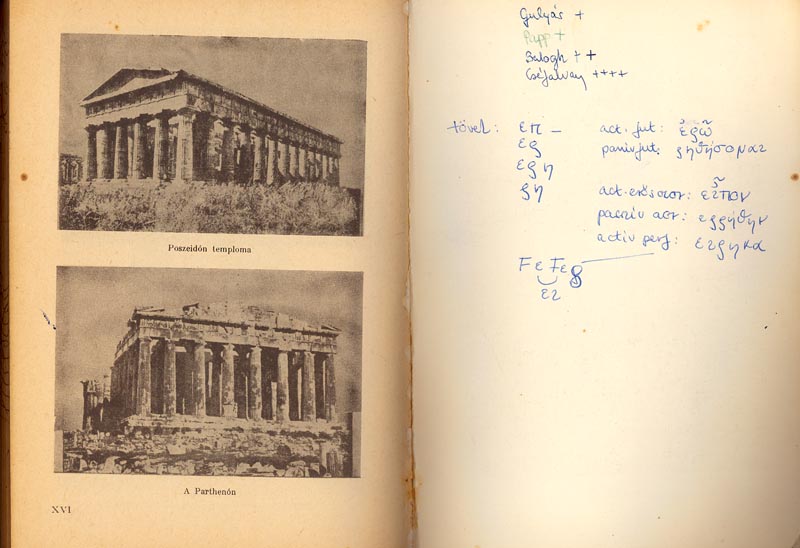 Poszeidón temploma
A Parthenón
XVI
Gulyás +
Papp +
Balogh + +
Cséfalvay ++++
tövel: επ – act. fut: ἐρῶ
ερ passiv fut: ρηθήσομαι
ερη
ρη act. erős aor: εἶπον
passiv aor: ερρήθην
activ perf: ειρηκα
FεFερ
ει